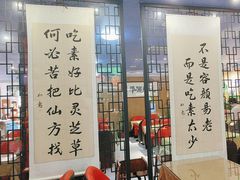 不是容颜易老
而是吃素太少
吃素好比灵芝草
何必苦把仙方找